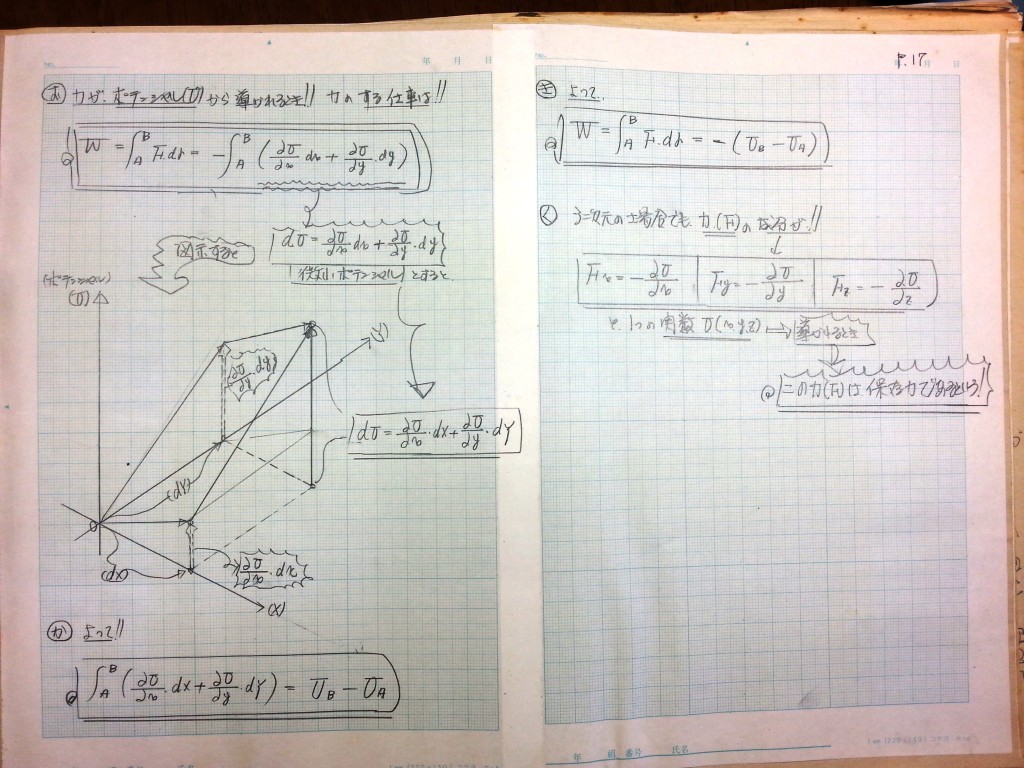 年 月 日
お 力が、ポテンシャル(U)から導かれるとき!! 力のする仕事は!!
W = ∫_A^B F・dr = -∫_A^B (∂U/∂x dx + ∂U/∂y・dy)
dU = ∂U/∂x dx + ∂U/∂y・dy
図示すると
微小ポテンシャル とすると
(ポテンシャル)
(U)
(Y)
∂U/∂y・dy
dU = ∂U/∂x・dx + ∂U/∂y・dY
(dY)
O
(dx)
∂U/∂x・dx
(X)
か よって!!
∫_A^B (∂U/∂x・dx + ∂U/∂y・dY) = U_B - U_A
P.17
月 日
き よって
W = ∫_A^B F・dr = -(U_B - U_A)
く 三次元の場合でも、力(F)の成分が!!
Fx = -∂U/∂x Fy = -∂U/∂y Fz = -∂U/∂z
と、1つの関数 U(x,y,z) → 導かれるとき
この力(F)は保存力であるという!
年 組 番号 氏名